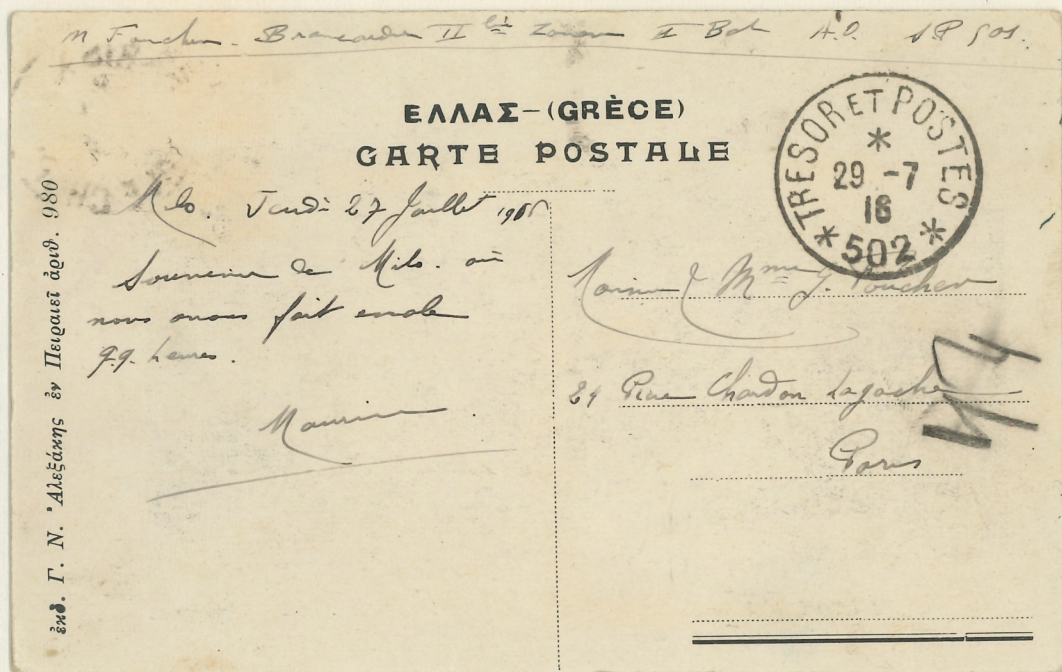 M Foucher. Brancardier II bis Zouaves II Bat A.O. S.P 501.
ΕΛΛΑΣ-(GRÈCE)
CARTE POSTALE
TRESOR ET POSTES
29 -7
16
502
Milo. Jeudi 27 Juillet 1916
Souvenir de Milo. où
nous avons fait escale
99. heures.
Maurice
Monsieur & Mme J. Foucher
Rue Chardon Lagache
Paris
ἐκδ. Γ. Ν. Ἀλεξάκης ἐν Πειραιεῖ ἀριθ. 980